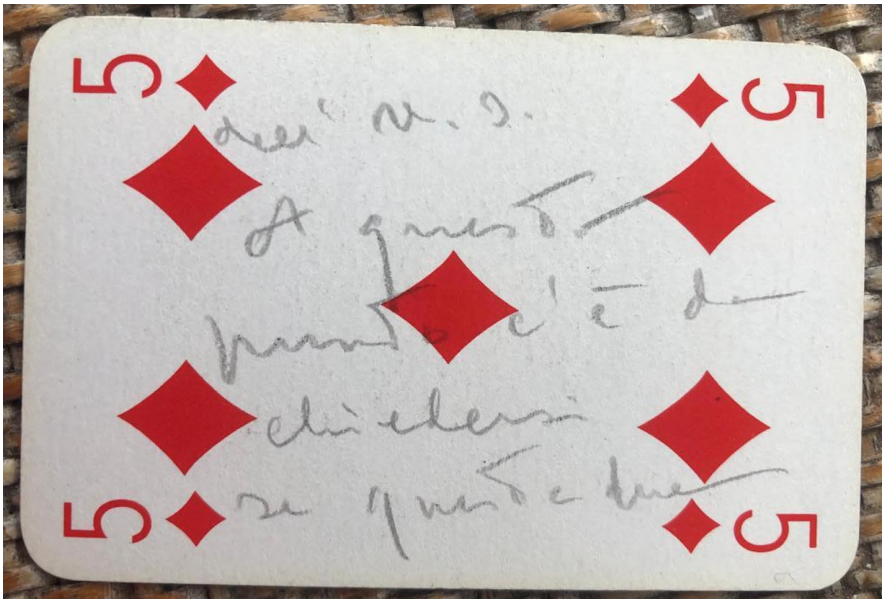 5 5
dell' N. I.
A questo
punto c'è da
chiedersi
se queste due
5 5